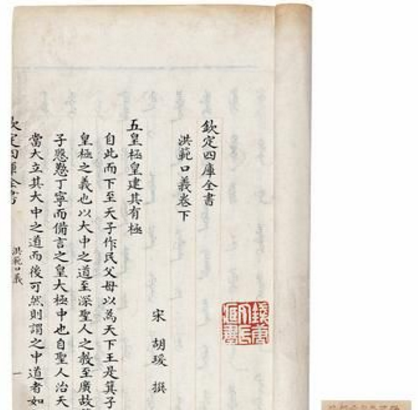 欽定四庫全書
洪範口義卷下
宋 胡瑗 撰
五皇極皇建其有極
自此而下至天子作民父母以為天下王是箕子
皇極之義也以大中之道至深聖人之教至廣故
子懇懇丁寧而備言之皇大極中也自聖人治天
當大立其大中之道而後可然則謂之中道者如
欽定四庫全書
洪範口義
一